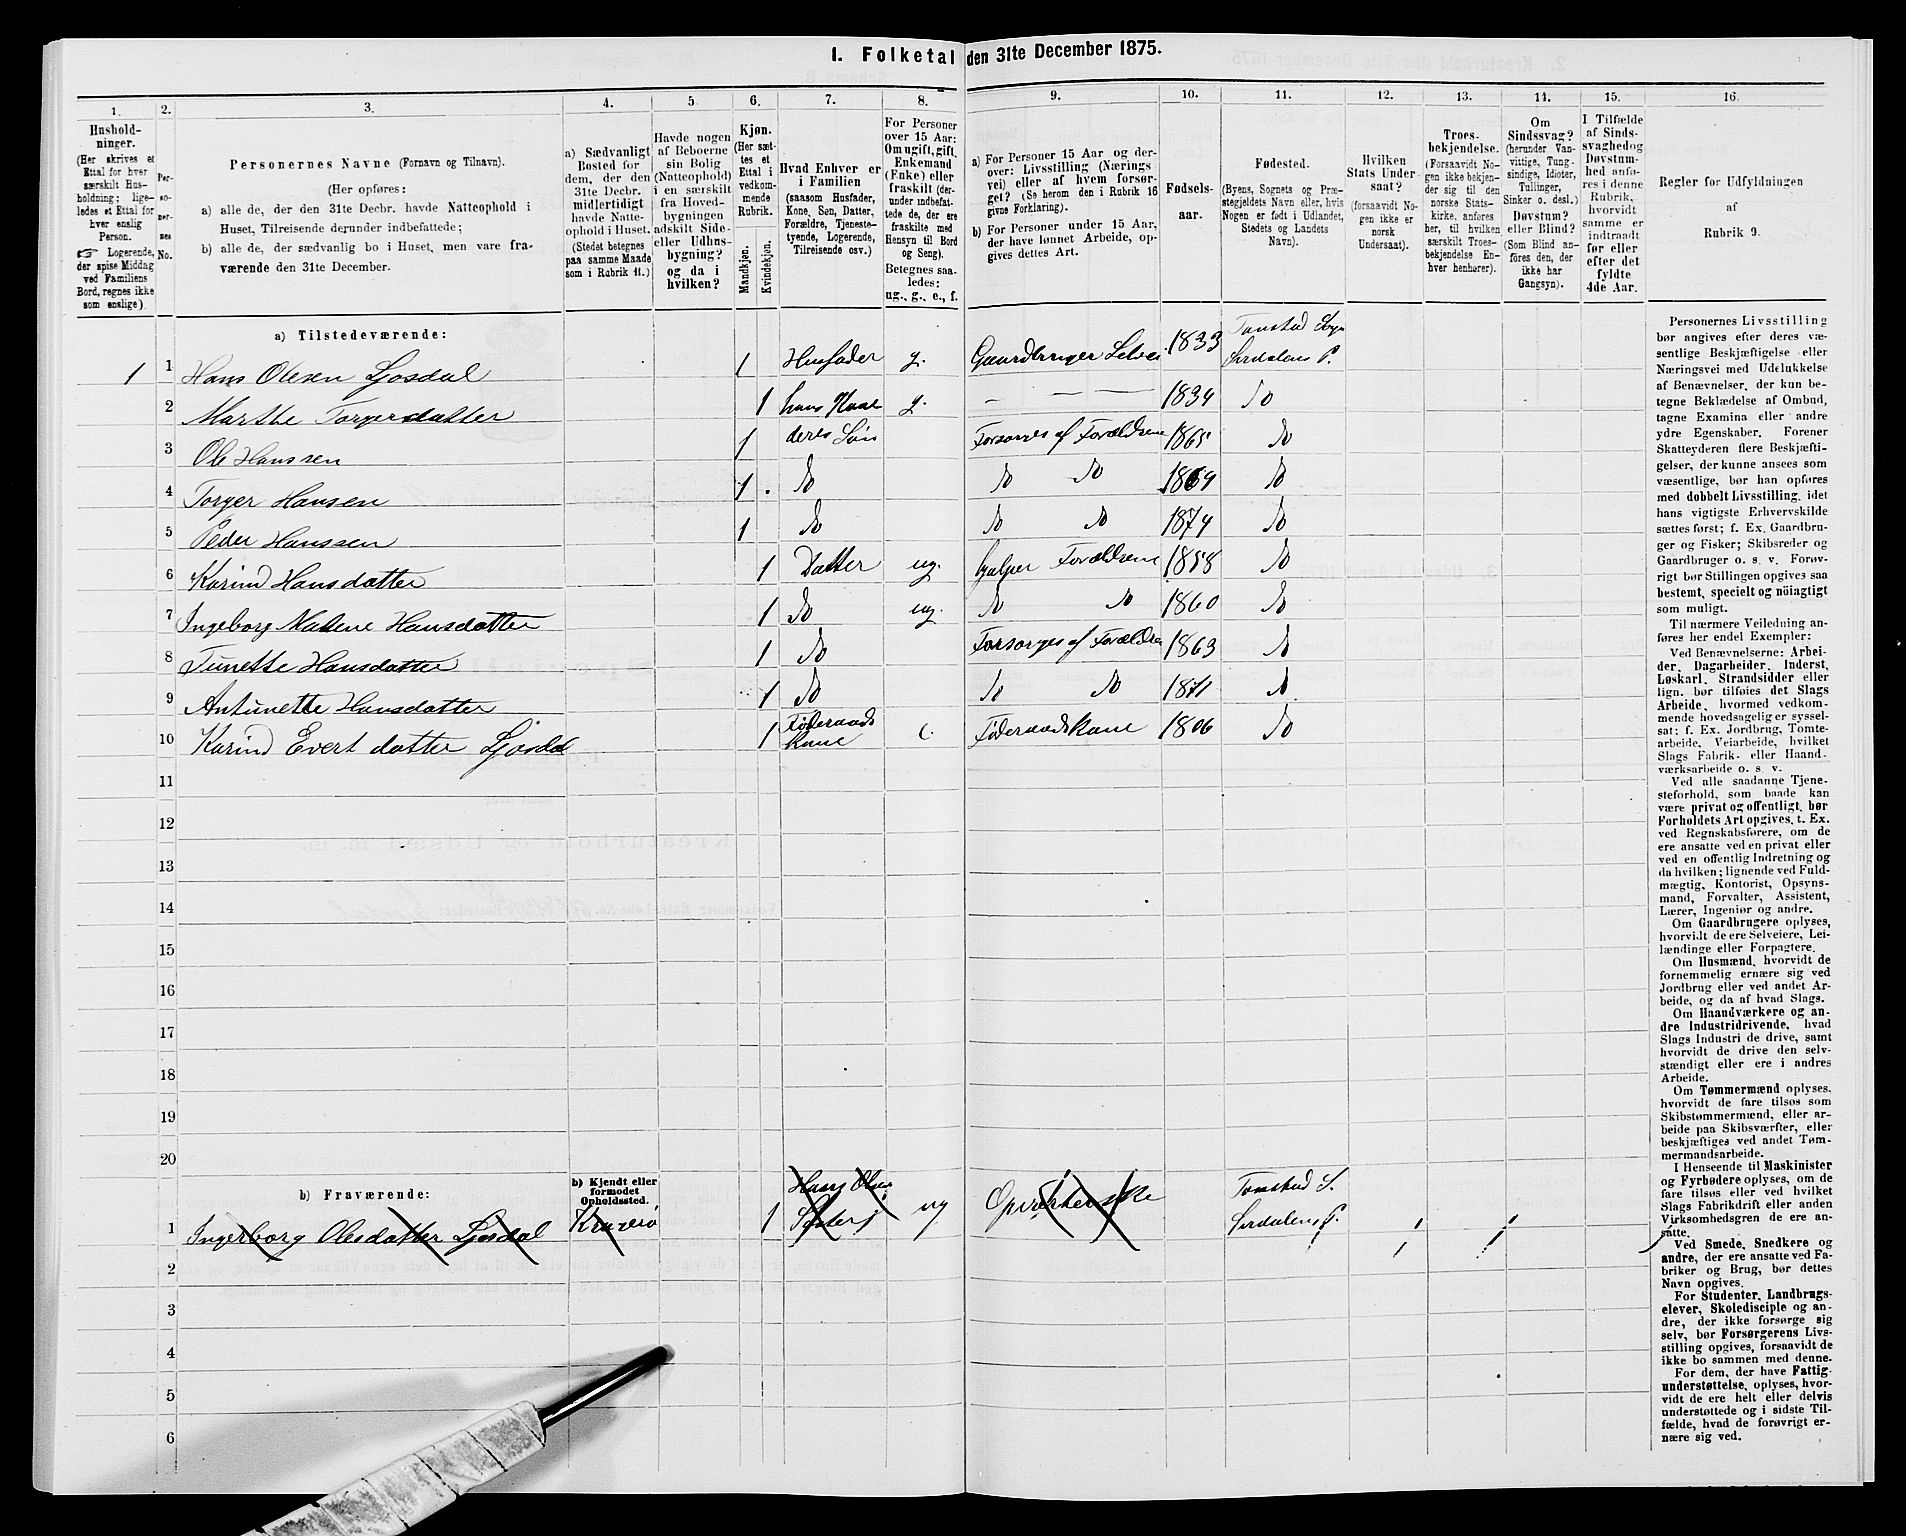 1. Folketal den 31te December 1875.
1.
Hushold-
ninger.
(Her skrives et
Ettal for hver
særskilt Hus-
holdning; lige-
ledes et Ettal for
hver enslig
Person.
☞ Logerende,
der spise Middag
ved Familiens
Bord, regnes ikke
som enslige).
2.
Per-
so-
ner-
nes
No.
3.
Personernes Navne (Fornavn og Tilnavn).
(Her opføres:
a) alle de, der den 31te Decbr. havde Natteophold i
Huset, Tilreisende derunder indbefattede;
b) alle de, der sædvanlig bo i Huset, men vare fra-
værende den 31te December.
4.
a) Sædvanligt
Bosted for
dem, der den
31te Decbr.
midlertidigt
havde Natte-
ophold i Huset.
(Stedet betegnes
paa samme Maade
som i Rubrik 11.)
5.
Havde nogen
af Beboerne
sin Bolig
(Natteophold)
i en særskilt
fra Hoved-
bygningen
adskilt Side-
eller Udhus-
bygning?
og da i
hvilken?
6.
Kjøn.
(Her sæt-
tes et
Ettal i
vedkom-
mende
Rubrik.
Mandkjøn.
Kvindekjøn.
7.
Hvad Enhver er
i Familien
(saasom Husfader,
Kone, Søn, Datter,
Forældre, Tjeneste-
tyende, Logerende,
Tilreisende osv.)
8.
For Personer
over 15 Aar:
Om ugift, gift,
Enkemand
(Enke) eller
fraskilt (der-
under indbefat-
tede de, der ere
fraskilte med
Hensyn til Bord
og Seng).
Betegnes saa-
ledes:
ug., g., e., f.
9.
a) For Personer 15 Aar og der-
over: Livsstilling (Nærings
vei) eller af hvem forsør-
get? (Se herom den i Rubrik 16
givne Forklaring).
b) For Personer under 15 Aar,
der have lønnet Arbeide, op-
gives dettes Art.
10.
Fødsels-
aar.
11.
Fødested.
(Byens, Sognets og Præ-
stegjeldets Navn eller, hvis
Nogen er født i Udlandet,
Stedets og Landets
Navn).
12.
Hvilken
Stats Under-
saat?
(forsaavidt No-
gen ikke er
norsk
Undersaat).
13.
Troes-
bekjendelse.
(Forsaavidt No-
gen ikke bekjen-
der sig til den
norske Stats-
kirke, anføres
her, til hvilken
særskilt Troes-
bekjendelse En-
hver henhører).
14.
Om
Sindssvag?
(herunder Van-
vittige, Tung-
sindige, Idioter,
Tullinger,
Sinker o. desl.)
Døvstum?
eller Blind?
(Som Blind an-
føres den, der
ikke har
Gangsyn).
15.
I Tilfælde
af Sinds-
svaghed og
Døvstum-
hed anfø-
res i denne
Rubrik,
hvorvidt
samme er
indtraadt
før eller
efter det
fyldte
4de Aar.
16.
Regler for Udfyldningen
af
Rubrik 9.
a) Tilstedeværende:
1 1 Hans Olesen Ljosdal 1 Husfader g. Gaardbruger Selvei 1833 Tonstad Sogn Sirdalens P.
2 Marthe Torgersdatter 1 hans Kone g. — — 1834 Do
3 Ole Hanssen 1 deres Søn Forsørges af Forældrene 1865 Do
4 Torger Hansen 1 Do Do Do 1869 Do
5 Peder Hanssen 1 Do Do Do 1874 Do
6 Karind Hansdatter 1 Datter ug. hjælper Forældrene 1858 Do
7 Ingeborg Malene Hansdatter 1 Do ug. Do Do 1860 Do
8 Tunette Hansdatter 1 Do Forsørges af Forældre 1863 Do
9 Antunette Hansdatter 1 Do Do Do 1871 Do
10 Karind Evert datter Ljosdal 1 Føderaads Kone e. Føderaadskone 1806 Do
11
12
13
14
15
16
17
18
19
20
b) Fraværende:
b) Kjendt eller
formodet
Opholdssted.
1 Ingerborg Olesdatter Ljosdal 1 Hans Olsens Søster ug Tonstad S. Sirdalens P.
2
3
4
5
6
Personernes Livsstilling
bør angives efter deres væ-
sentlige Beskjæftigelse eller
Næringsvei med Udelukkelse
af Benævnelser, der kun be-
tegne Beklædelse af Ombud,
tagne Examina eller andre
ydre Egenskaber. Forener
Skatteyderen flere Beskjæfti-
gelser, der kunne ansees som
væsentlige, bør han opføres
med dobbelt Livsstilling, idet
hans vigtigste Erhvervskilde
sættes først; f. Ex. Gaardbru-
ger og Fisker; Skibsreder og
Gaardbruger o. s. v. Forøv-
rigt bør Stillingen opgives saa
bestemt, specielt og nöiagtigt
som muligt.
Til nærmere Veiledning an-
føres her endel Exempler:
Ved Benævnelserne: Arbei-
der, Dagarbeider, Inderst,
Løskarl, Strandsidder eller
lign. bør tilføies det Slags
Arbeide, hvormed vedkom-
mende hovedsagelig er syssel-
sat; f. Ex. Jordbrug, Tomte-
arbeide, Veiarbeide, hvilket
Slags Fabrik- eller Haand-
værksarbeide o. s. v.
Ved alle saadanne Tjene-
steforhold, som baade kan
være privat og offentligt, bør
Forholdets Art opgives, t. Ex.
ved Regnskabsførere, om de
ere ansatte ved en privat eller
ved en offentlig Indretning og
da hvilken; lignende ved Fuld-
mægtig, Kontorist, Opsyns-
mand, Forvalter, Assistent,
Lærer, Ingeniør og andre.
Om Gaardbrugere oplyses,
hvorvidt de ere Selveiere, Lei-
lændinge eller Forpagtere.
Om Husmænd, hvorvidt de
fornemmelig ernære sig ved
Jordbrug eller ved andet Ar-
beide, og da af hvad Slags.
Om Haandværkere og an-
dre Industridrivende, hvad
Slags Industri de drive, samt
hvorvidt de drive den selv-
stændigt eller ere i andres
Arbeide.
Om Tømmermænd oplyses,
hvorvidt de fare tilsøs som
Skibstømmermænd, eller ar-
beide paa Skibsværfter, eller
beskjæftiges ved andet Tøm-
mermandsarbeide.
I Henseende til Maskinister
og Fyrbødere oplyses, om de
fare tilsøs eller ved hvilket
Slags Fabrikdrift eller anden
Virksomhedsgren de ere an-
satte.
Ved Smede, Snedkere og
andre, der ere ansatte ved Fa-
briker og Brug, bør dettes
Navn opgives.
For Studenter, Landbrugs-
elever, Skoledisciple og an-
dre, der ikke forsørge sig
selv, bør Forsørgerens Livs-
stilling opgives, forsaavidt de
ikke bo sammen med denne.
For dem, der have Fattig-
understøttelse, oplyses, hvor-
vidt de ere helt eller delvis
understøttede og i sidste Til-
fælde, hvad de forøvrigt er-
nære sig ved.